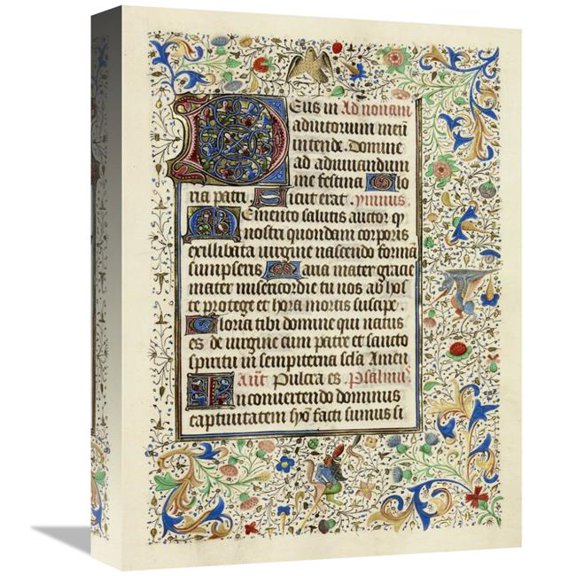 Deus in Ad nonam
adiutorium meū
intende. Domine
ad adiuuandum
me festina Glo
ria patri Sicut erat ymnus
Memento salutis auctor q
nostri quondam corporis
ex illibata uirgine nascendo forma
sumpseris Maria mater gracie
mater misericordie tu nos ab hos
te protege et hora mortis suscipe
Gloria tibi domine qui natus
es de uirgine cum patre et sancto
spiritu in sempiterna scła Amen
Aūt Pulcra es Psalmus
In conuertendo dominus
captiuitatem syō facti sumus si